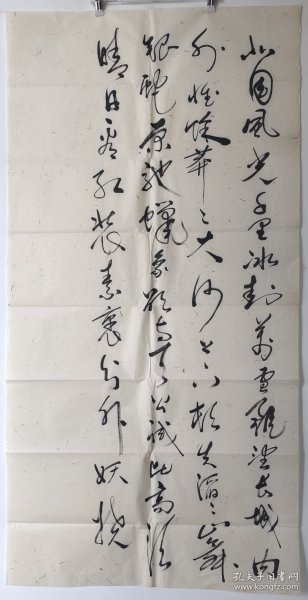 北国風光千里冰封萬雪飄望长城内
外惟馀莽々大河上下顿失滔々山舞
银蛇原驰蠟象欲与天公试比高须
晴日看红装素裹分外妖娆
孔夫子旧书网